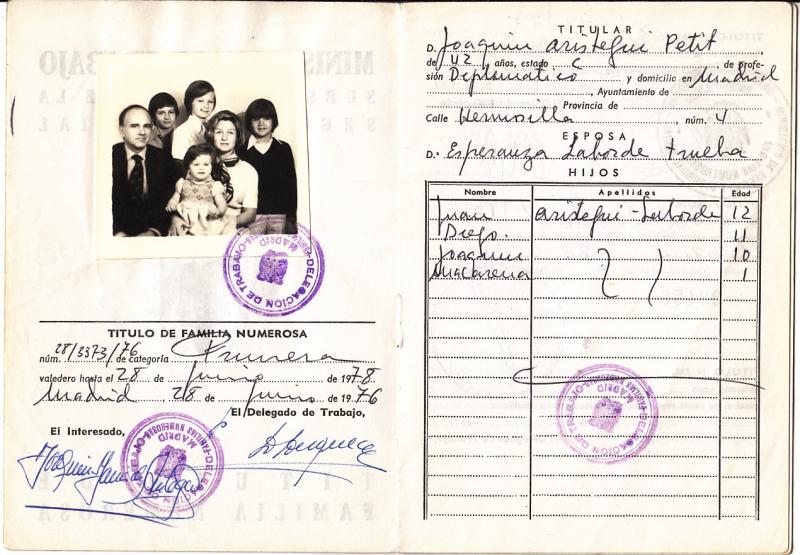 TITULO DE FAMILIA NUMEROSA
núm. 28/3373/76 de categoría Primera
valedero hasta el 28 de junio de 1978
Madrid 28 de junio de 1976
El Delegado de Trabajo,
El Interesado,
DELEGACION DE TRABAJO-FAMILIAS NUMEROSAS-
MADRID
DELEGACION DE TRABAJO-FAMILIAS NUMEROSAS-
MADRID
TITULAR
D. Joaquin Aristegui Petit
de 42 años, estado C, de profe-
sión Diplomatico y domicilio en Madrid
Ayuntamiento de
Provincia de
Calle Hermosilla núm. 4
ESPOSA
D.ª Esperanza Laborde Trueba
HIJOS
Nombre Apellidos Edad
Juan Aristegui-Laborde 12
Diego 11
Joaquin 10
Macarena 1
DELEGACION DE TRABAJO-FAMILIAS NUMEROSAS-
MADRID